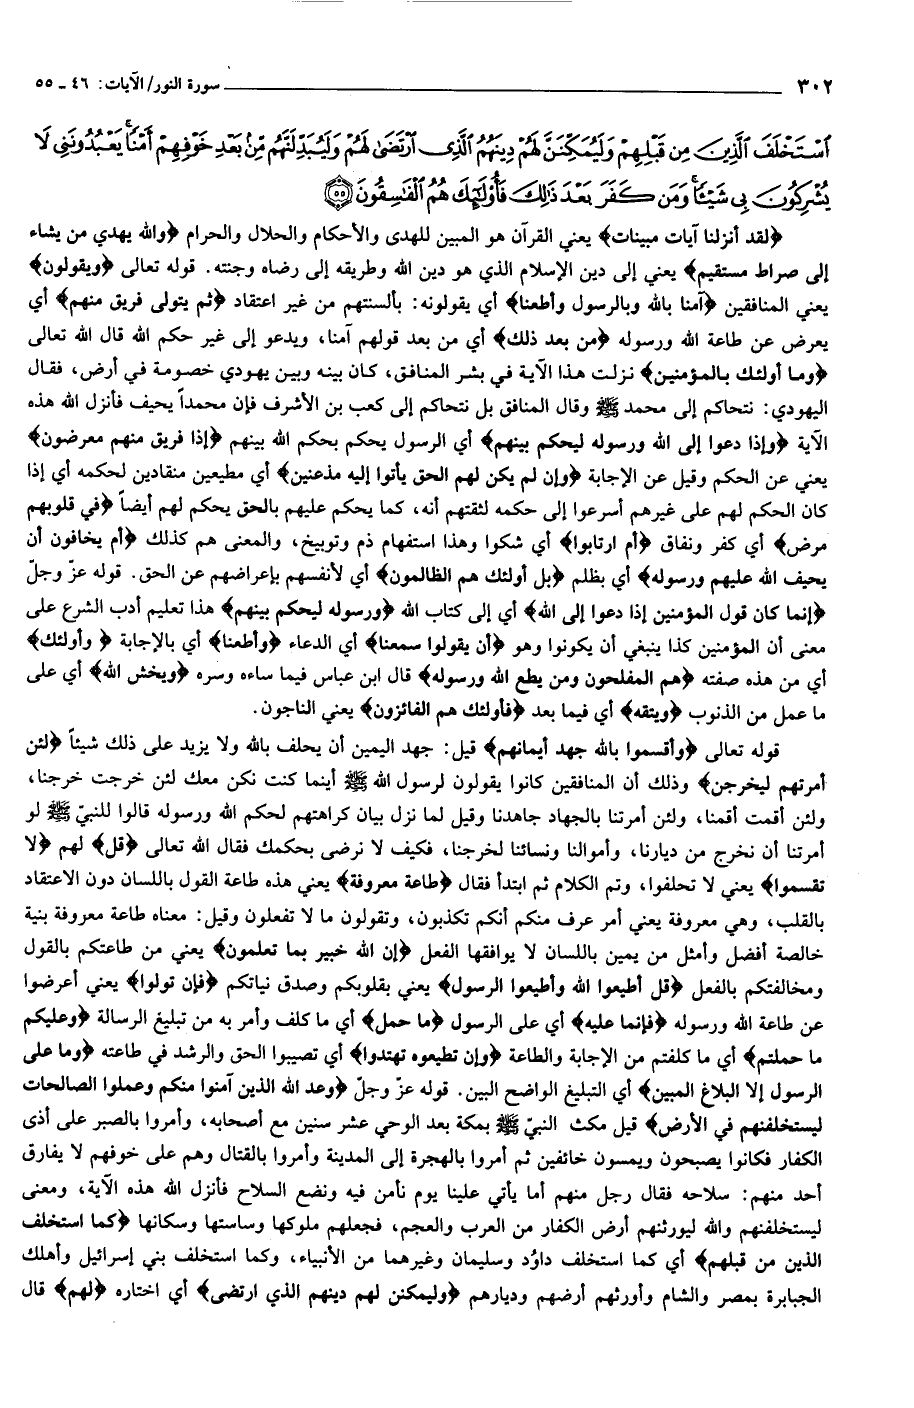 ٣٠٢ سورة النور/ الآيات: ٤٦ ـ ٥٥
ٱسْتَخْلَفَ ٱلَّذِينَ مِن قَبْلِهِمْ وَلَيُمَكِّنَنَّ لَهُمْ دِينَهُمُ ٱلَّذِى ٱرْتَضَىٰ لَهُمْ وَلَيُبَدِّلَنَّهُم مِّنۢ بَعْدِ خَوْفِهِمْ أَمْنًا يَعْبُدُونَنِى لَا
يُشْرِكُونَ بِى شَيْـًٔا وَمَن كَفَرَ بَعْدَ ذَٰلِكَ فَأُو۟لَـٰٓئِكَ هُمُ ٱلْفَـٰسِقُونَ ﴿٥٥﴾
﴿لقد أنزلنا آيات مبينات﴾ يعني القرآن هو المبين للهدى والأحكام والحلال والحرام ﴿والله يهدي من يشاء
إلى صراط مستقيم﴾ يعني إلى دين الإسلام الذي هو دين الله وطريقه إلى رضاه وجنته. قوله تعالى ﴿ويقولون﴾
يعني المنافقين ﴿آمنا بالله وبالرسول وأطعنا﴾ أي يقولونه: بألسنتهم من غير اعتقاد ﴿ثم يتولى فريق منهم﴾ أي
يعرض عن طاعة الله ورسوله ﴿من بعد ذلك﴾ أي من بعد قولهم آمنا، ويدعو إلى غير حكم الله قال الله تعالى
﴿وما أولئك بالمؤمنين﴾ نزلت هذا الآية في بشر المنافق، كان بينه وبين يهودي خصومة في أرض، فقال
اليهودي: نتحاكم إلى محمد ﷺ وقال المنافق بل نتحاكم إلى كعب بن الأشرف فإن محمداً يحيف فأنزل الله هذه
الآية ﴿وإذا دعوا إلى الله ورسوله ليحكم بينهم﴾ أي الرسول يحكم بحكم الله بينهم ﴿إذا فريق منهم معرضون﴾
يعني عن الحكم وقيل عن الإجابة ﴿وإن لم يكن لهم الحق يأتوا إليه مذعنين﴾ أي مطيعين منقادين لحكمه أي إذا
كان الحكم لهم على غيرهم أسرعوا إلى حكمه لثقتهم أنه، كما يحكم عليهم بالحق يحكم لهم أيضاً ﴿في قلوبهم
مرض﴾ أي كفر ونفاق ﴿أم ارتابوا﴾ أي شكوا وهذا استفهام ذم وتوبيخ، والمعنى هم كذلك ﴿أم يخافون أن
يحيف الله عليهم ورسوله﴾ أي بظلم ﴿بل أولئك هم الظالمون﴾ أي لأنفسهم بإعراضهم عن الحق. قوله عزّ وجلّ
﴿إنما كان قول المؤمنين إذا دعوا إلى الله﴾ أي إلى كتاب الله ﴿ورسوله ليحكم بينهم﴾ هذا تعليم أدب الشرع على
معنى أن المؤمنين كذا ينبغي أن يكونوا وهو ﴿أن يقولوا سمعنا﴾ أي الدعاء ﴿وأطعنا﴾ أي بالإجابة ﴿ وأولئك﴾
أي من هذه صفته ﴿هم المفلحون ومن يطع الله ورسوله﴾ قال ابن عباس فيما ساءه وسره ﴿ويخش الله﴾ أي على
ما عمل من الذنوب ﴿ويتقه﴾ أي فيما بعد ﴿فأولئك هم الفائزون﴾ يعني الناجون.
قوله تعالى ﴿وأقسموا بالله جهد أيمانهم﴾ قيل: جهد اليمين أن يحلف بالله ولا يزيد على ذلك شيئاً ﴿لئن
أمرتهم ليخرجن﴾ وذلك أن المنافقين كانوا يقولون لرسول الله ﷺ أينما كنت نكن معك لئن خرجت خرجنا،
ولئن أقمت أقمنا، ولئن أمرتنا بالجهاد جاهدنا وقيل لما نزل بيان كراهتهم لحكم الله ورسوله قالوا للنبيّ ﷺ لو
أمرتنا أن نخرج من ديارنا، وأموالنا ونسائنا لخرجنا، فكيف لا نرضى بحكمك فقال الله تعالى ﴿قل﴾ لهم ﴿لا
تقسموا﴾ يعني لا تحلفوا، وتم الكلام ثم ابتدأ فقال ﴿طاعة معروفة﴾ يعني هذه طاعة القول باللسان دون الاعتقاد
بالقلب، وهي معروفة يعني أمر عرف منكم أنكم تكذبون، وتقولون ما لا تفعلون وقيل: معناه طاعة معروفة بنية
خالصة أفضل وأمثل من يمين باللسان لا يوافقها الفعل ﴿إن الله خبير بما تعلمون﴾ يعني من طاعتكم بالقول
ومخالفتكم بالفعل ﴿قل أطيعوا الله وأطيعوا الرسول﴾ يعني بقلوبكم وصدق نياتكم ﴿فإن تولوا﴾ يعني أعرضوا
عن طاعة الله ورسوله ﴿فإنما عليه﴾ أي على الرسول ﴿ما حمل﴾ أي ما كلف وأمر به من تبليغ الرسالة ﴿وعليكم
ما حملتم﴾ أي ما كلفتم من الإجابة والطاعة ﴿وإن تطيعوه تهتدوا﴾ أي تصيبوا الحق والرشد في طاعته ﴿وما على
الرسول إلا البلاغ المبين﴾ أي التبليغ الواضح البين. قوله عزّ وجلّ ﴿وعد الله الذين آمنوا منكم وعملوا الصالحات
ليستخلفنهم في الأرض﴾ قيل مكث النبيّ ﷺ بمكة بعد الوحي عشر سنين مع أصحابه، وأمروا بالصبر على أذى
الكفار فكانوا يصبحون ويمسون خائفين ثم أمروا بالهجرة إلى المدينة وأمروا بالقتال وهم على خوفهم لا يفارق
أحد منهم: سلاحه فقال رجل منهم أما يأتي علينا يوم نأمن فيه ونضع السلاح فأنزل الله هذه الآية، ومعنى
ليستخلفنهم والله ليورثنهم أرض الكفار من العرب والعجم، فجعلهم ملوكها وساستها وسكانها ﴿كما استخلف
الذين من قبلهم﴾ أي كما استخلف داوُد وسليمان وغيرهما من الأنبياء، وكما استخلف بني إسرائيل وأهلك
الجبابرة بمصر والشام وأورثهم أرضهم وديارهم ﴿وليمكنن لهم دينهم الذي ارتضى﴾ أي اختاره ﴿لهم﴾ قال